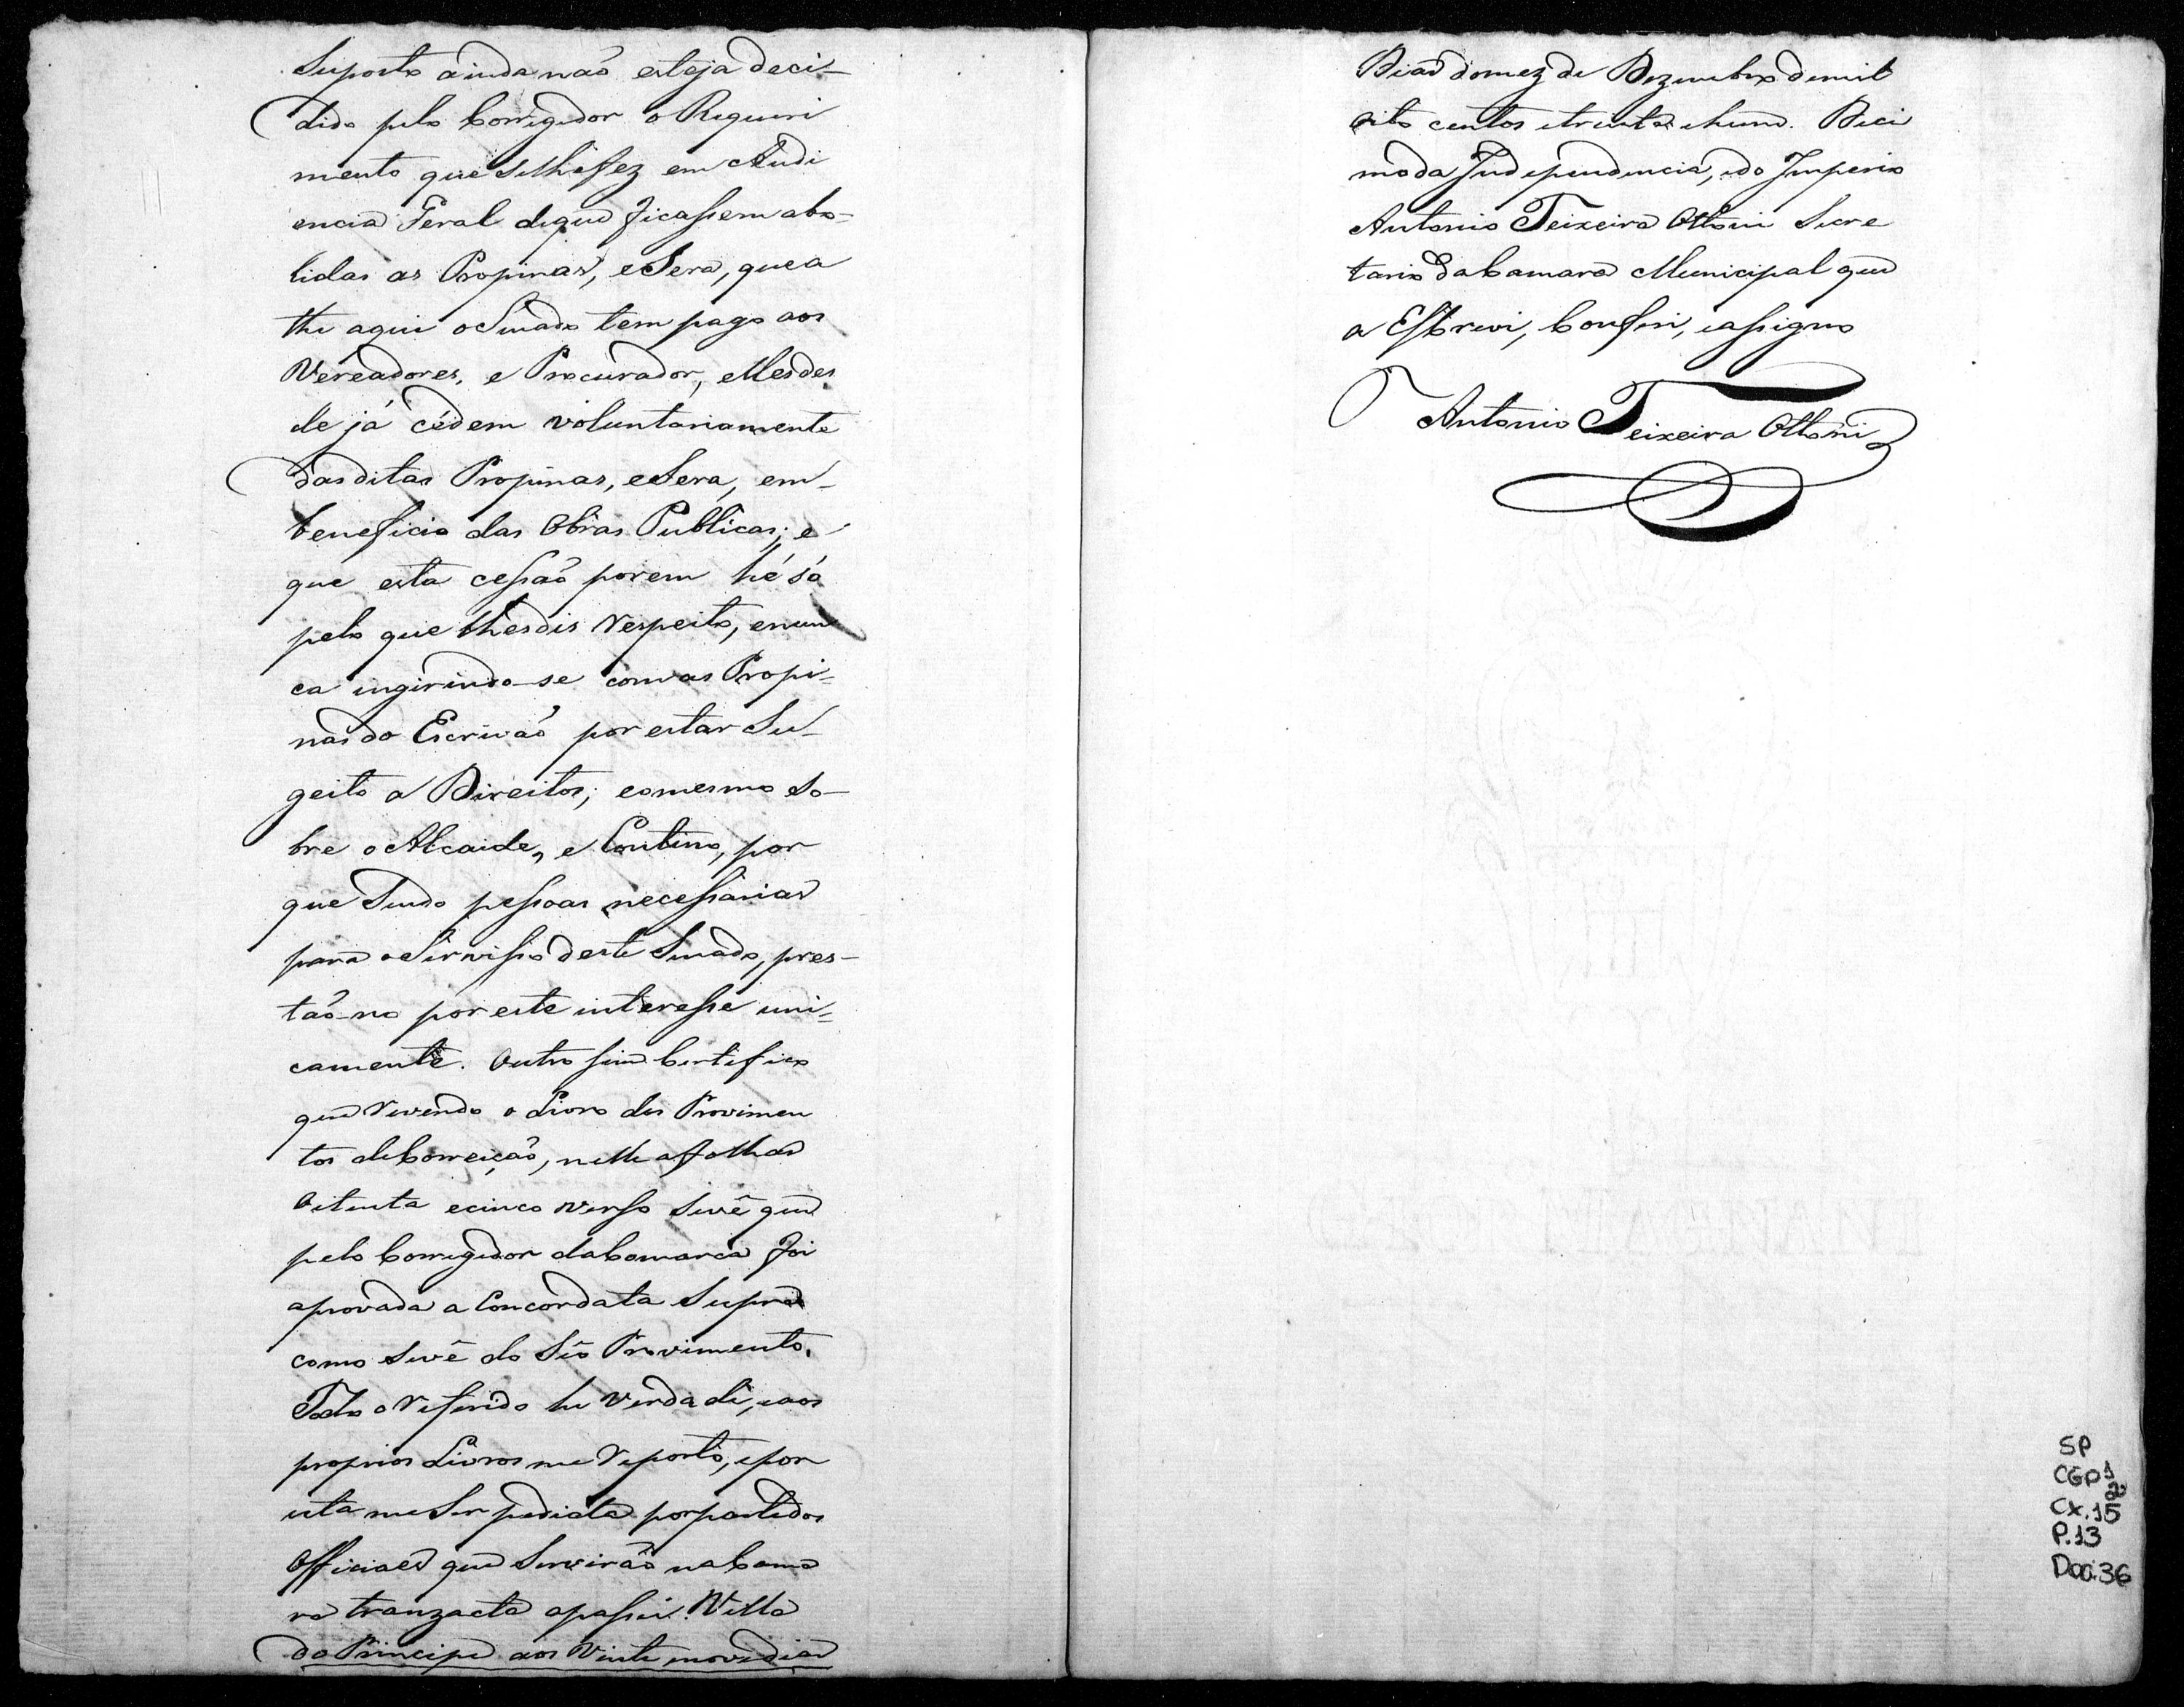 Suposto ainda naõ esteja deci-
dido pelo Corregedor o Requeri
mento que selhefez em Audi
encia Geral deque ficassem abo-
lidas as Propinas, e Sera, que a
the aqui o Senado tem pago aos
Vereadores, e Procurador, elles des
de já cédem voluntariamente
das ditas Propinas, e Sera, em-
beneficio das Obras Publicas; e
que esta cessaõ porem hé só
pelo que lhesdis respeito, enun
ca ingirindo-se com as Propi=
nas do Escrivaõ por estar Su-
geito a Direitos; eomesmo so-
bre o Alcaide, e Contino, por
que Sendo pessoas necessarias
para o Servisso deste Senado, pres-
taõ-no por este interesse uni=
camente. Outro sim Certifico
que revendo o Livro dos Provimen
tos deCorreiçaõ, nelle afolhas
Oitenta ecinco verso sevê que
pelo Corregedor daComarca foi
aprovada a Concordata Supra
como sevê do Séo Provimento.
Todo o referido he verdade, eaos
proprios Livros me reporto, epor
esta me Ser pedida por parte dos
Officiaes que Servirão naCama
ra tranzacta apassei. Villa
do Principe aos Vinte enove dias
Dias domez de Dezembro demil
oito centos etrinta ehum. Deci
mo da Independencia, edo Imperio
Antonio Teixeira Ottoni Secre
tario daCamara Municipal que
a Escrevi, Conferi, eassigno
Antonio Teixeira Ottoni
SP
CGP1
Cx.15
P.13
Doc:36